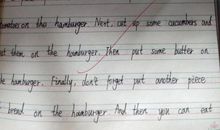 tomatoes on the hamburger. Next, cut up some cucumbers and
put them on the hamburger. Then put some butter on
the hamburger. Finally, don't forget put another piece
bread on the hamburger. And then you can eat